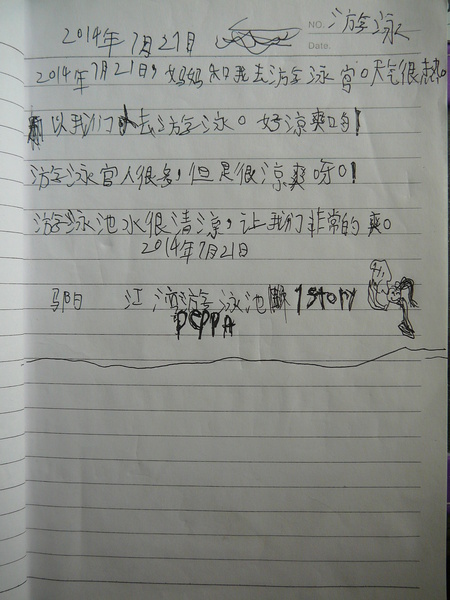 2014年7月21日
NO. 游泳
Date.
2014年7月21日，妈妈和我去游泳宫。天气很热。
所以我们去游泳。好凉爽的！
游泳宫人很多，但是很凉爽呀。！
游泳池水很清凉，让我们非常的爽。
2014年7月21日
江湾游泳池 1 story
PEPPA